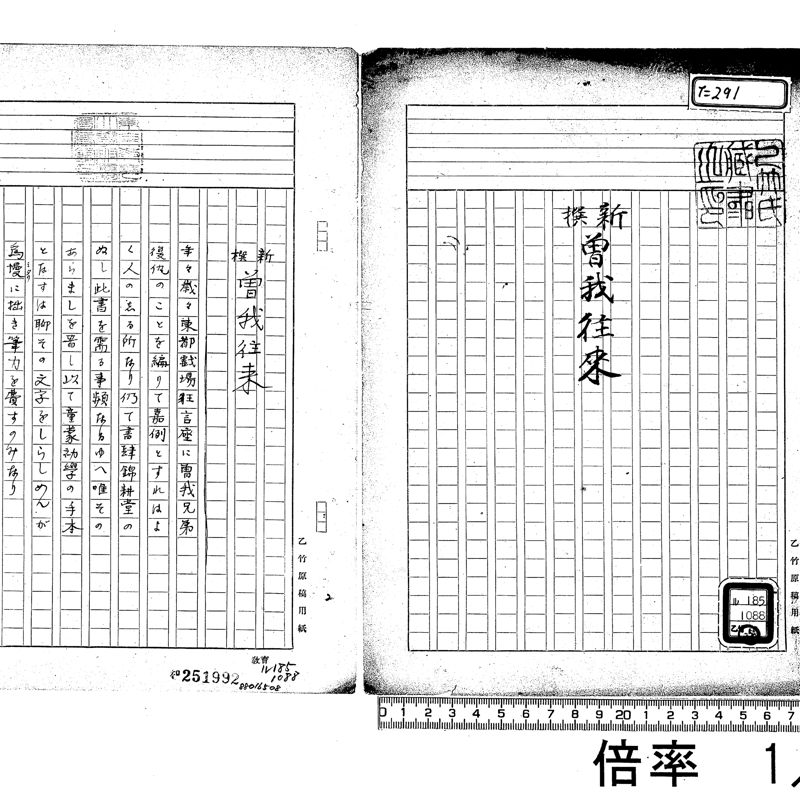 T=291
乙竹氏蔵書之印
新撰 曽我往來
ル 185
1088
乙竹原稿用紙
新撰 曽我往来
年々歳々東都戯場狂言座に曽我兄弟
復仇のことを編りて嘉例とすれはよ
く人のゑる所なり仍て書肆錦耕堂の
ぬし此書を需る事頻なるゆへ唯その
あらましを書し以て童蒙幼學の手本
となすは聊その文字をしらしめんが
為慢に拙き筆力を費すのみなり
乙竹原稿用紙
2
教育
ル185
1088
251992
88016508
0 1 2 3 4 5 6 7 8 9 20 1 2 3 4 5 6 7
倍率 1